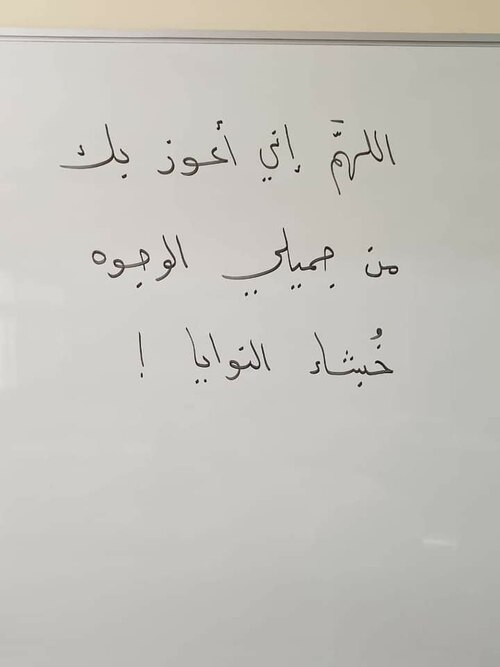 اللهمَّ إني أعوز بك
من جميلي الوجوه
خُبثاء النوايا !